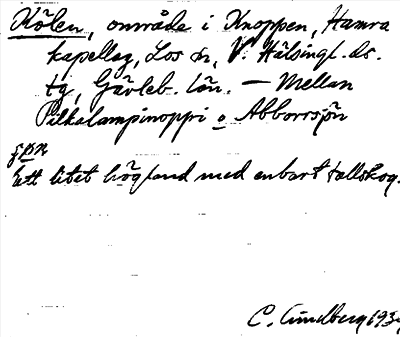 Kölen, område i Knoppen, Hamra
kapellag, Los sn, V. Hälsingl. ds.
tg, Gävleb. län. — Mellan
Pilkalampinoppi o Abborrsjön
Ett litet högland med enbart tallskog.
C. Lundberg 193